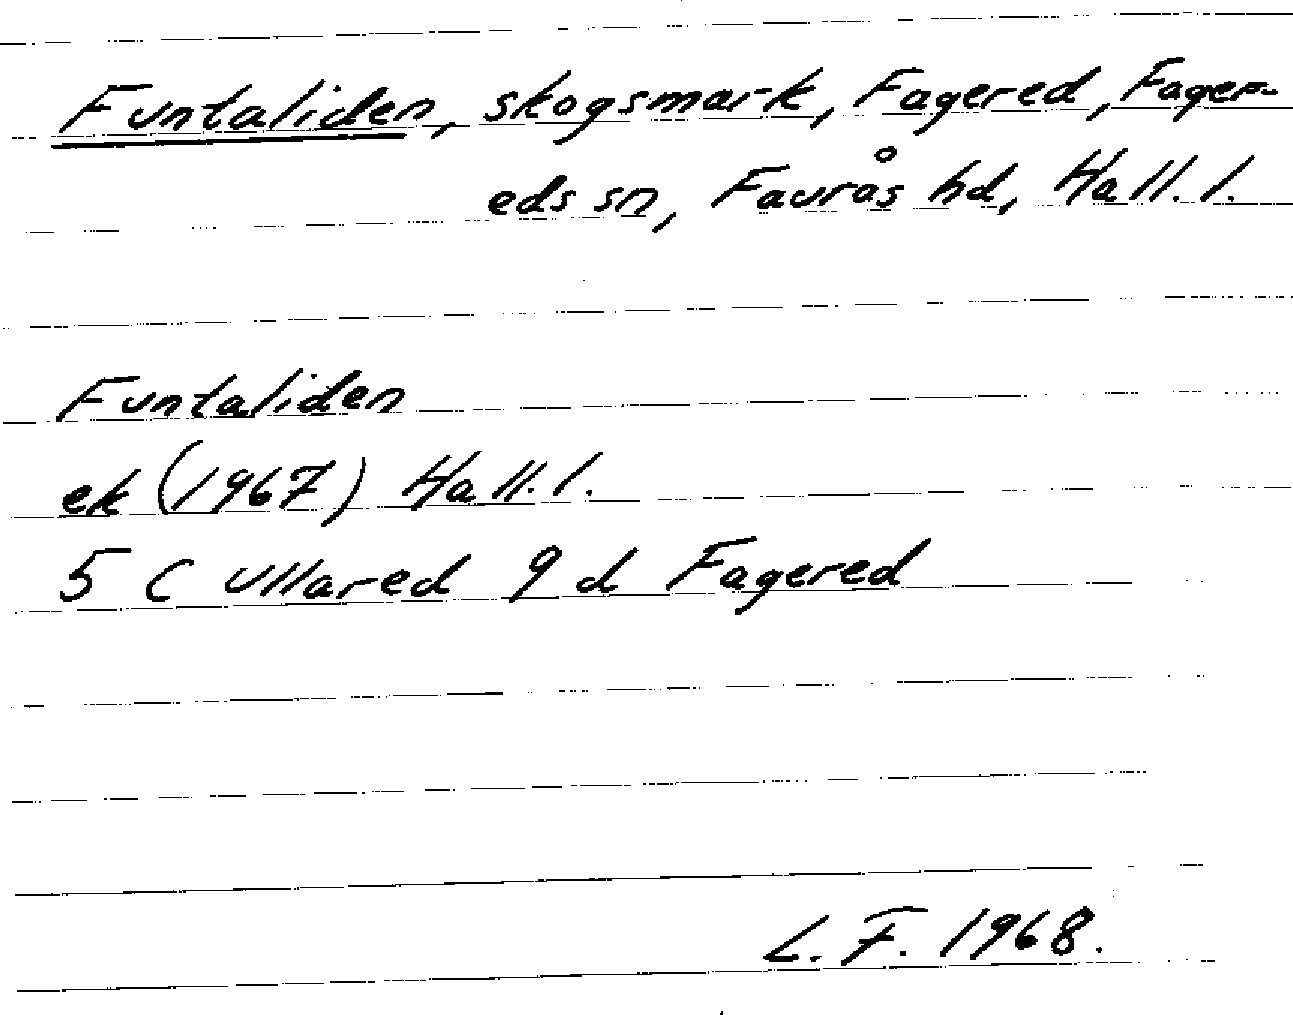 Funtaliden, skogsmark, Fagered, Fager-
eds sn, Faurås hd, Hall.l.
Funtaliden
ek (1967) Hall.l.
5 C Ullared 9 d Fagered
L.F. 1968.